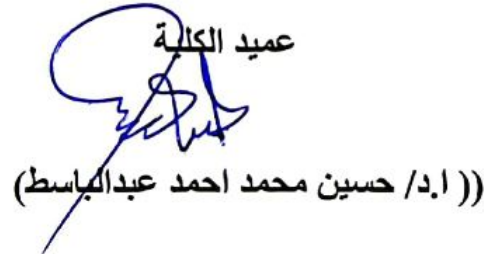 عميد الكلية
(( ا.د/ حسين محمد احمد عبدالباسط)